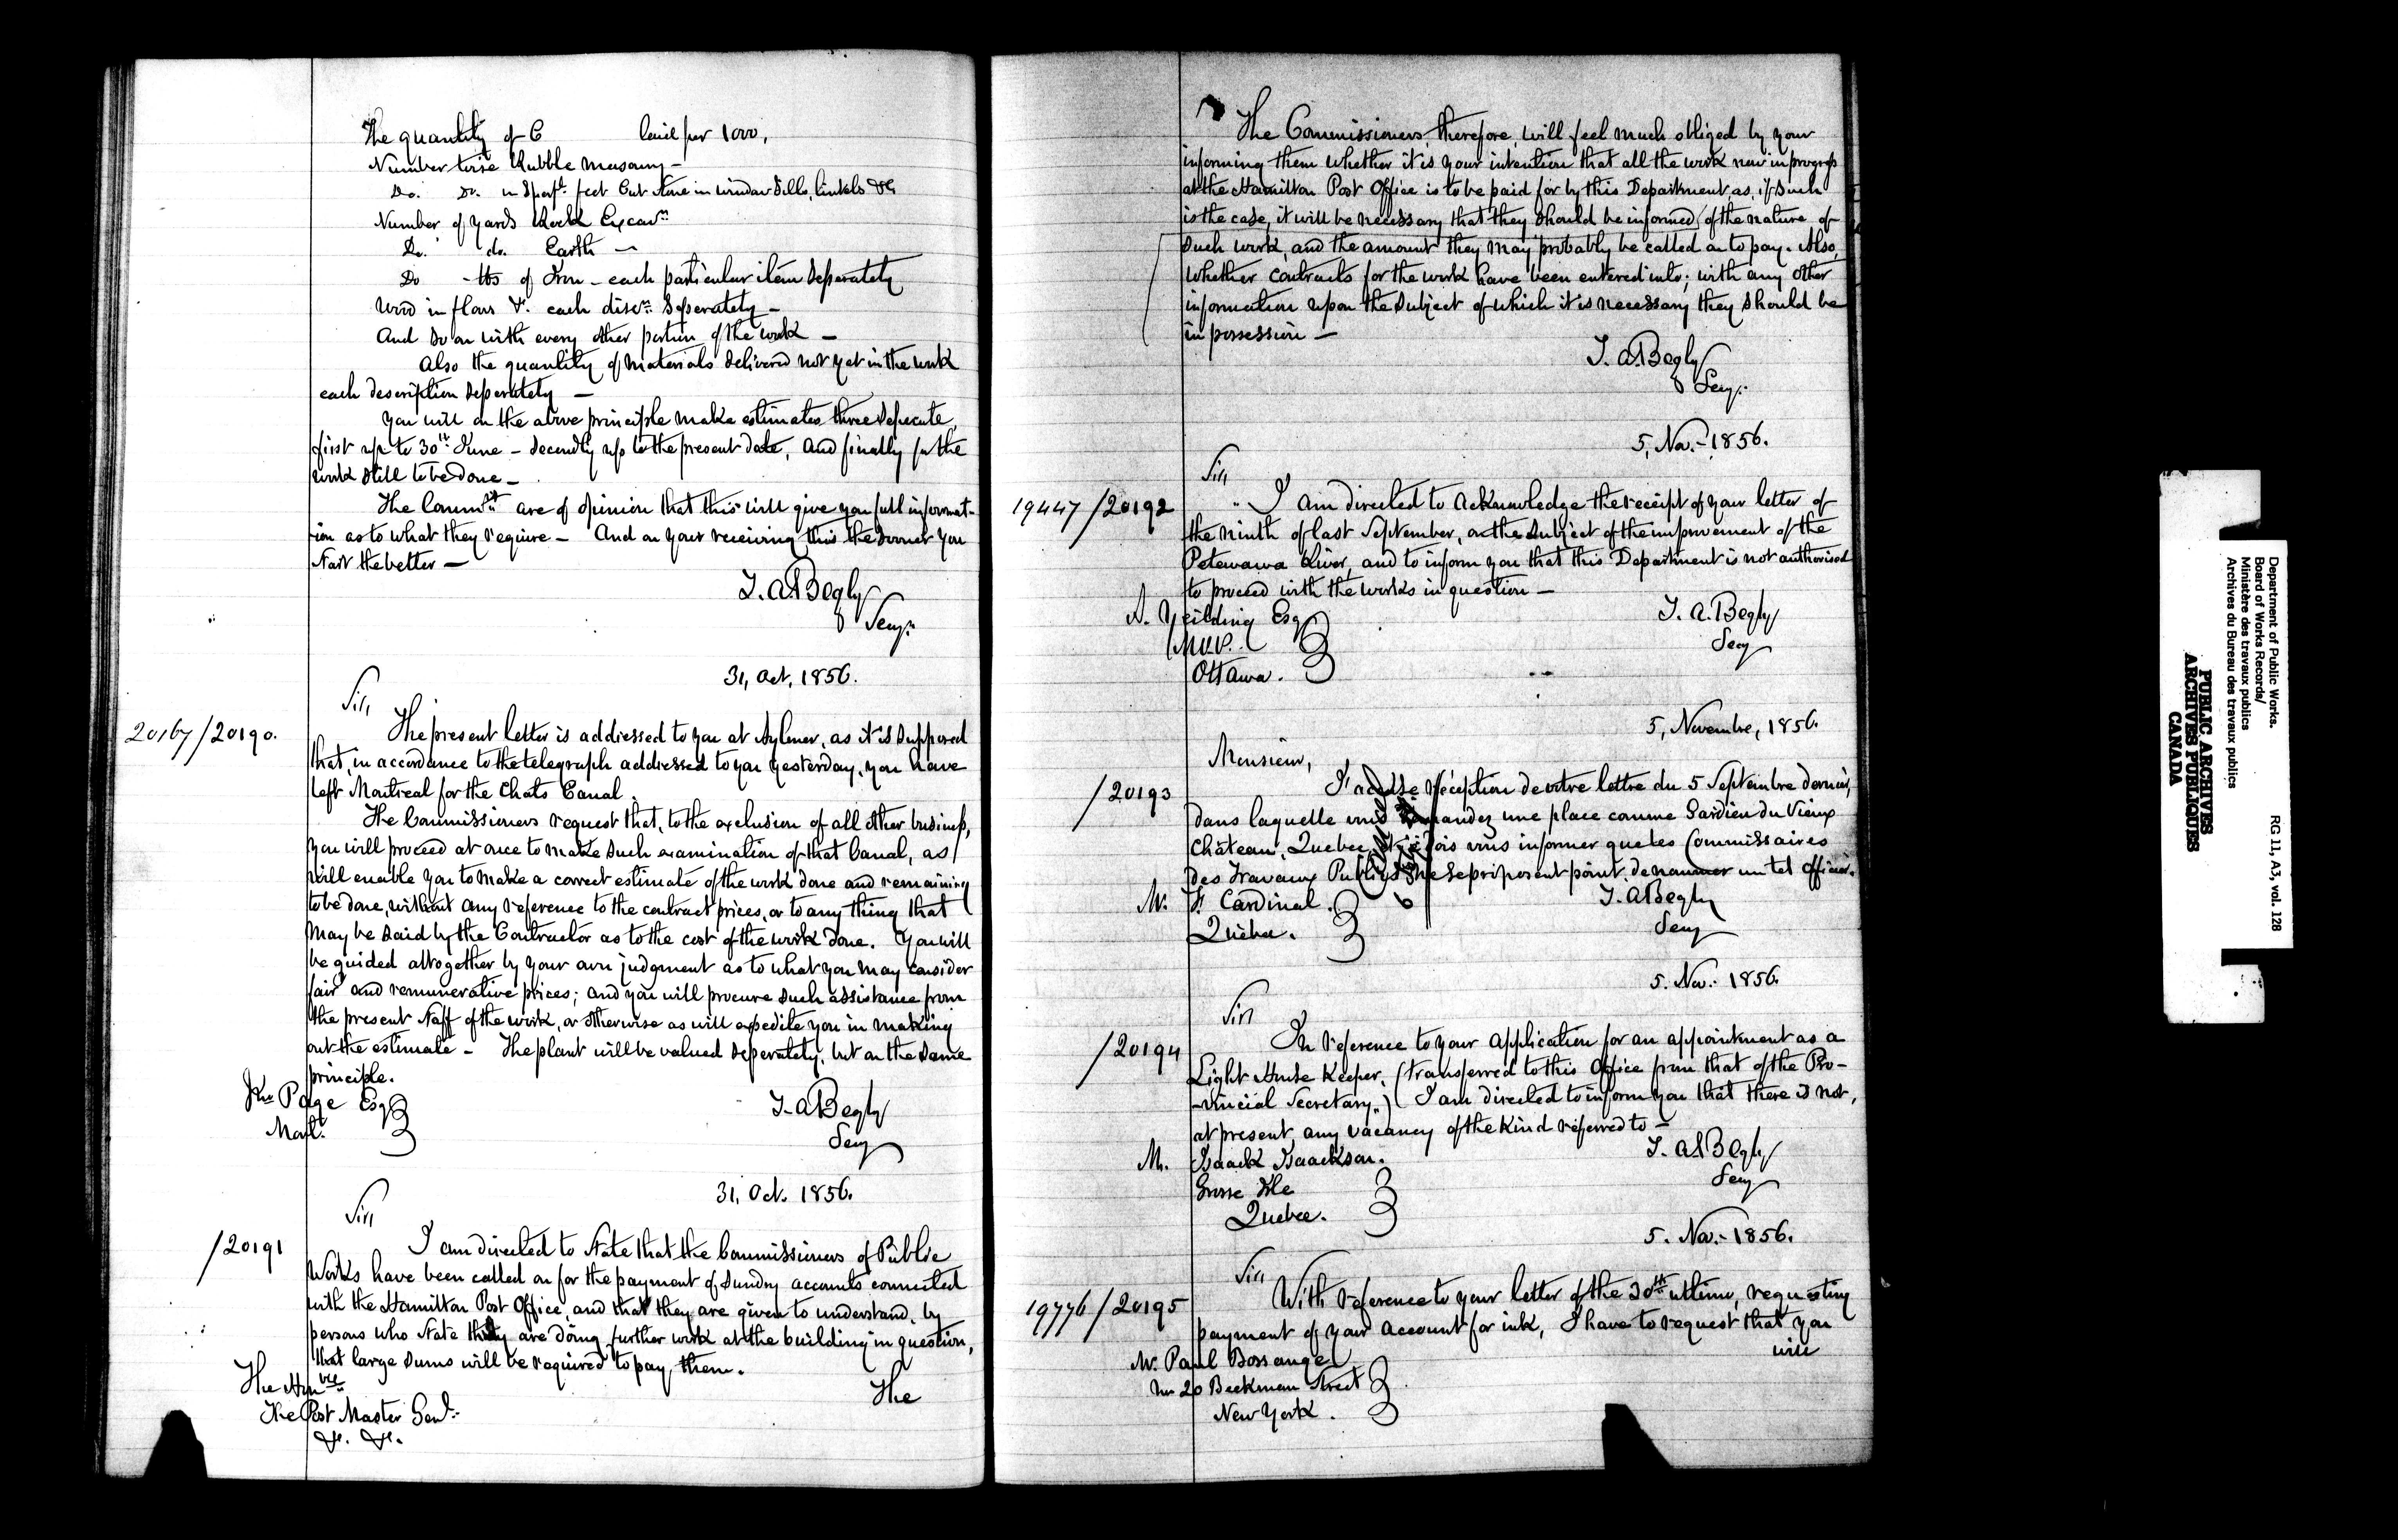 The quantity of B laid per 1000,
Number toise Rubble masonry —
Do. Do. in Superf.l feet Cut Stone in window Sills, lintels &c
Number of yards Rock Excavn
Do. do. Earth —
Do - lbs of Iron - each particular item Seperately
Wood in floors &c. each discn. Seperately —
And so on with every other portion of the work —
Also the quantity of materials delivered not yet in the work
each description seperately —
You will on the above principle make estimates three seperate,
first up to 30th June - secondly up to the present date, and finally for the
work still to be done —
The Commrs. are of opinion that this will give you full informat-
-ion as to what they require — And on your receiving this the sooner you
start the better —
T. A. Begly
Secy.
31, Oct, 1856.
Sir,
20167/20190.
The present letter is addressed to you at Aylmer, as it is supposed
that, in accordance to the telegraph addressed to you yesterday, you have
left Montreal for the Chats Canal.
The Commissioners request that, to the exclusion of all other business,
you will proceed at once to make such examination of that Canal, as
will enable you to make a correct estimate of the work done and remaining
to be done, without any reference to the contract prices, or to any thing that
may be said by the Contractor as to the cost of the work done. You will
be guided altogether by your own judgment as to what you may consider
fair and remunerative prices; and you will procure such assistance from
the present staff of the work, or otherwise as will expedite you in making
out the estimate — The plant will be valued seperately, but on the same
principle.
Jno Page Esq
Mont.
T. A Begly
Secy
31, Oct. 1856.
Sir,
/20191
I am directed to state that the Commissioners of Public
Works have been called on for the payment of sundry accounts connected
with the Hamilton Post Office, and that they are given to understand, by
persons who state they are doing further work at the building in question,
that large sums will be required to pay them.
The Honble
The Post Master Genl.
&c. &c.
The
The Commissioners, therefore, will feel much obliged by your
informing them whether it is your intention that all the work now in progress
at the Hamilton Post Office is to be paid for by this Department as, if such
is the case, it will be necessary that they should be informed of the nature of
such work, and the amount they may probably be called on to pay. Also,
whether contracts for the work have been entered into; with any other
information upon the subject of which it is necessary they should be
in possession —
T. A. Begly
Secy.
5, Nov. - 1856.
Sir,
19447/20192
I am directed to acknowledge the receipt of your letter of
the ninth of last September, on the subject of the improvement of the
Petewawa River, and to inform you that this Department is not authorised
to proceed with the works in question —
A. Yeilding Esq
M.P.P.
Ottawa.
T. A. Begly
Secy
5, Novembre, 1856.
Monsieur,
/20193
J'accuse réception de votre lettre du 5 Septembre dernier,
dans laquelle vous demandez une place comme Gardien du Vieux
Château, Quebec, et je dois vous informer que les Commissaires
des Travaux Publics ne se proposent point de nommer un tel officier.
M. F. Cardinal.
Québec.
T. A Begly
Secy
5. Nov. 1856.
Sir,
/20194
In reference to your application for an appointment as a
Light House Keeper, (transferred to this Office from that of the Pro-
-vincial Secretary,) I am directed to inform you that there is not,
at present, any vacancy of the kind referred to —
M. Isaack Isaackson.
Grosse Isle
Quebec.
T. A. Begly
Secy
5. Nov. - 1856.
Sir,
19776/20195
With reference to your letter of the 30th ultimo, requesting
payment of your account for ink, I have to request that you
will
M. Paul Bossange
No 20 Beekman Street
New York.
Department of Public Works.
Board of Works Records/
Ministère des travaux publics
Archives du Bureau des travaux publics
RG 11, A3, vol. 128
PUBLIC ARCHIVES
ARCHIVES PUBLIQUES
CANADA